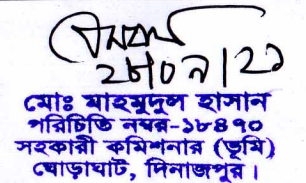 ২৮।০৭।২১
মোঃ মাহমুদুল হাসান
পরিচিতি নম্বর-১৮৪৭০
সহকারী কমিশনার (ভূমি)
ঘোড়াঘাট, দিনাজপুর।